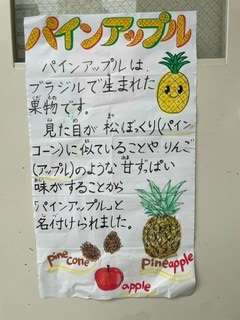 パインアップル
パインアップルは、
ブラジルで生まれた
果物です。
見た目が松ぼっくり(パイン
コーン)に似ていることやりんご
(アップル)のような甘ずっぱい
味がすることから
「パインアップル」と
名付けられました。
pine
cone
apple
pineapple